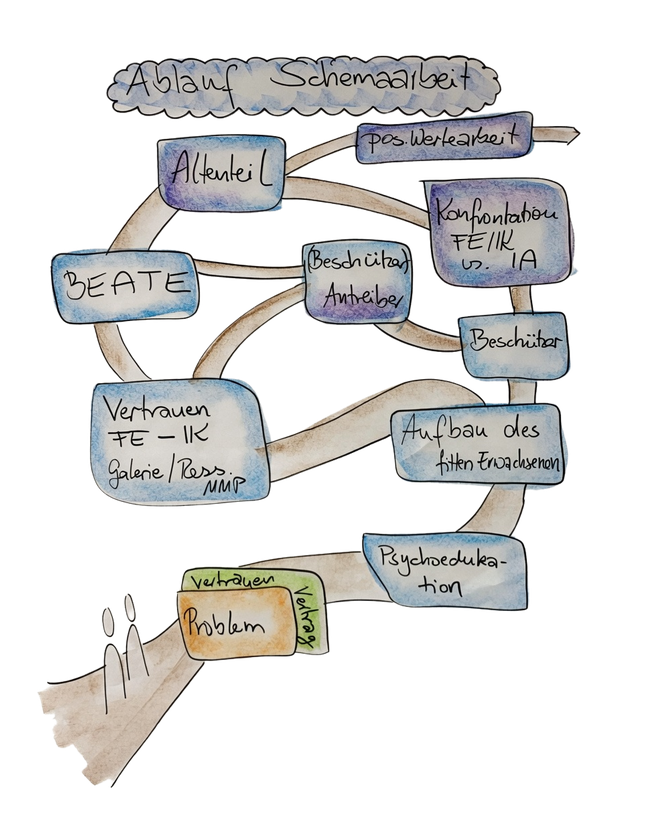 Ablauf Schemaarbeit
pos. Wertearbeit
Altenteil
Konfrontation
FE/IK
vs. IA
BEATE
(Beschützer)
Antreiber
Beschützer
Vertrauen
FE – IK
Galerie/Ress.
MMP
Aufbau des
fitten Erwachsenen
Psychoeduka-
tion
Vertrauen
Vertrag
Problem